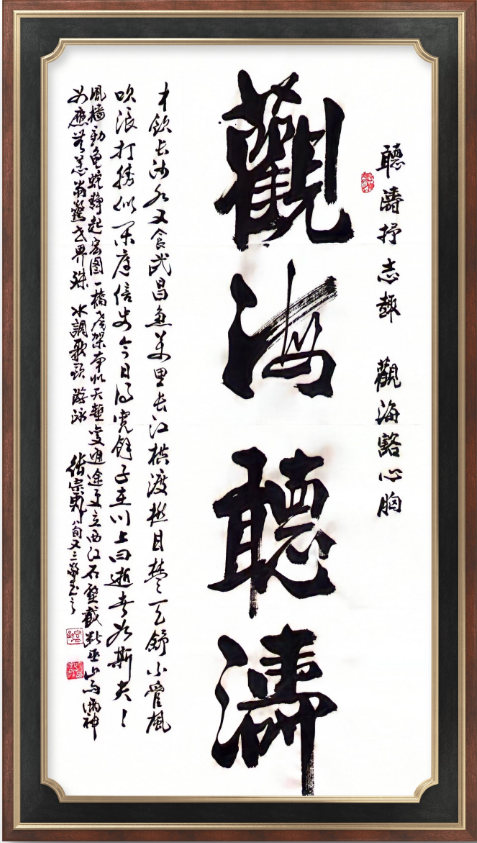 聽濤抒志趣 觀海豁心胸
觀海聽濤
才飲长沙水又食武昌魚萬里长江横渡極目楚天舒不管風
吹浪打勝似閒庭信步今日得宽餘子在川上曰逝者如斯夫
風檣動龜蛇靜起宏圖一橋飛架南北天塹變通途更立西江石壁截斷巫山
女應無恙當驚世界殊 水調歌頭 游泳 八旬又三